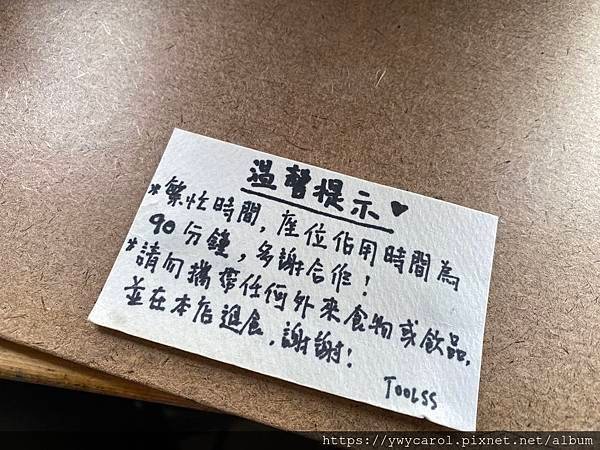 温馨提示♥
*繁忙時間，座位佔用時間為
90分鐘，多謝合作！
*請勿攜帶任何外來食物或飲品，
並在本店進食，謝謝！
TOOLSS
https://ywycarol.pixnet.net/album